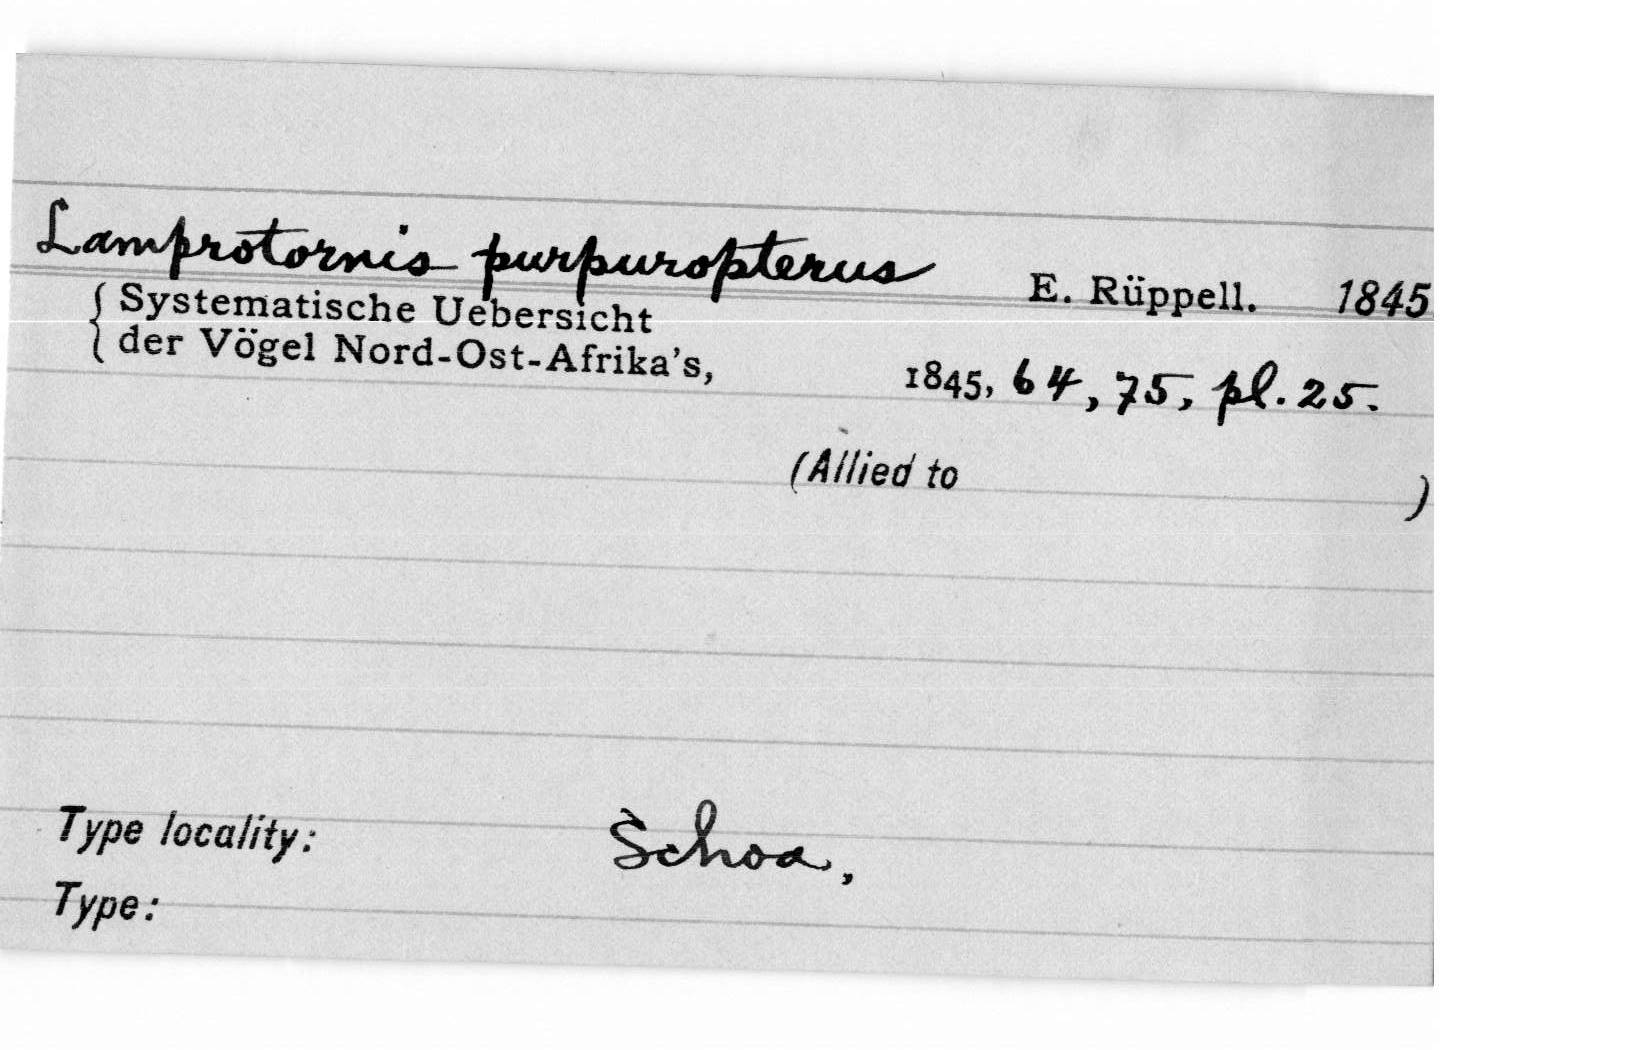 Lamprotornis purpuropterus E. Rüppell. 1845
{ Systematische Uebersicht
{ der Vögel Nord-Ost-Afrika's, 1845, 64, 75, pl. 25.
(Allied to )
Type locality: Schoa,
Type: